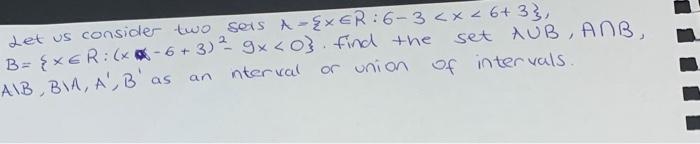 Let us consider two sets A = {x ∈ R : 6 - 3 < x < 6 + 3},
B = {x ∈ R : (x - 6 + 3)² - 9x < 0}. Find the set A∪B, A∩B,
A\B, B\A, A', B' as an nterval or union of intervals.